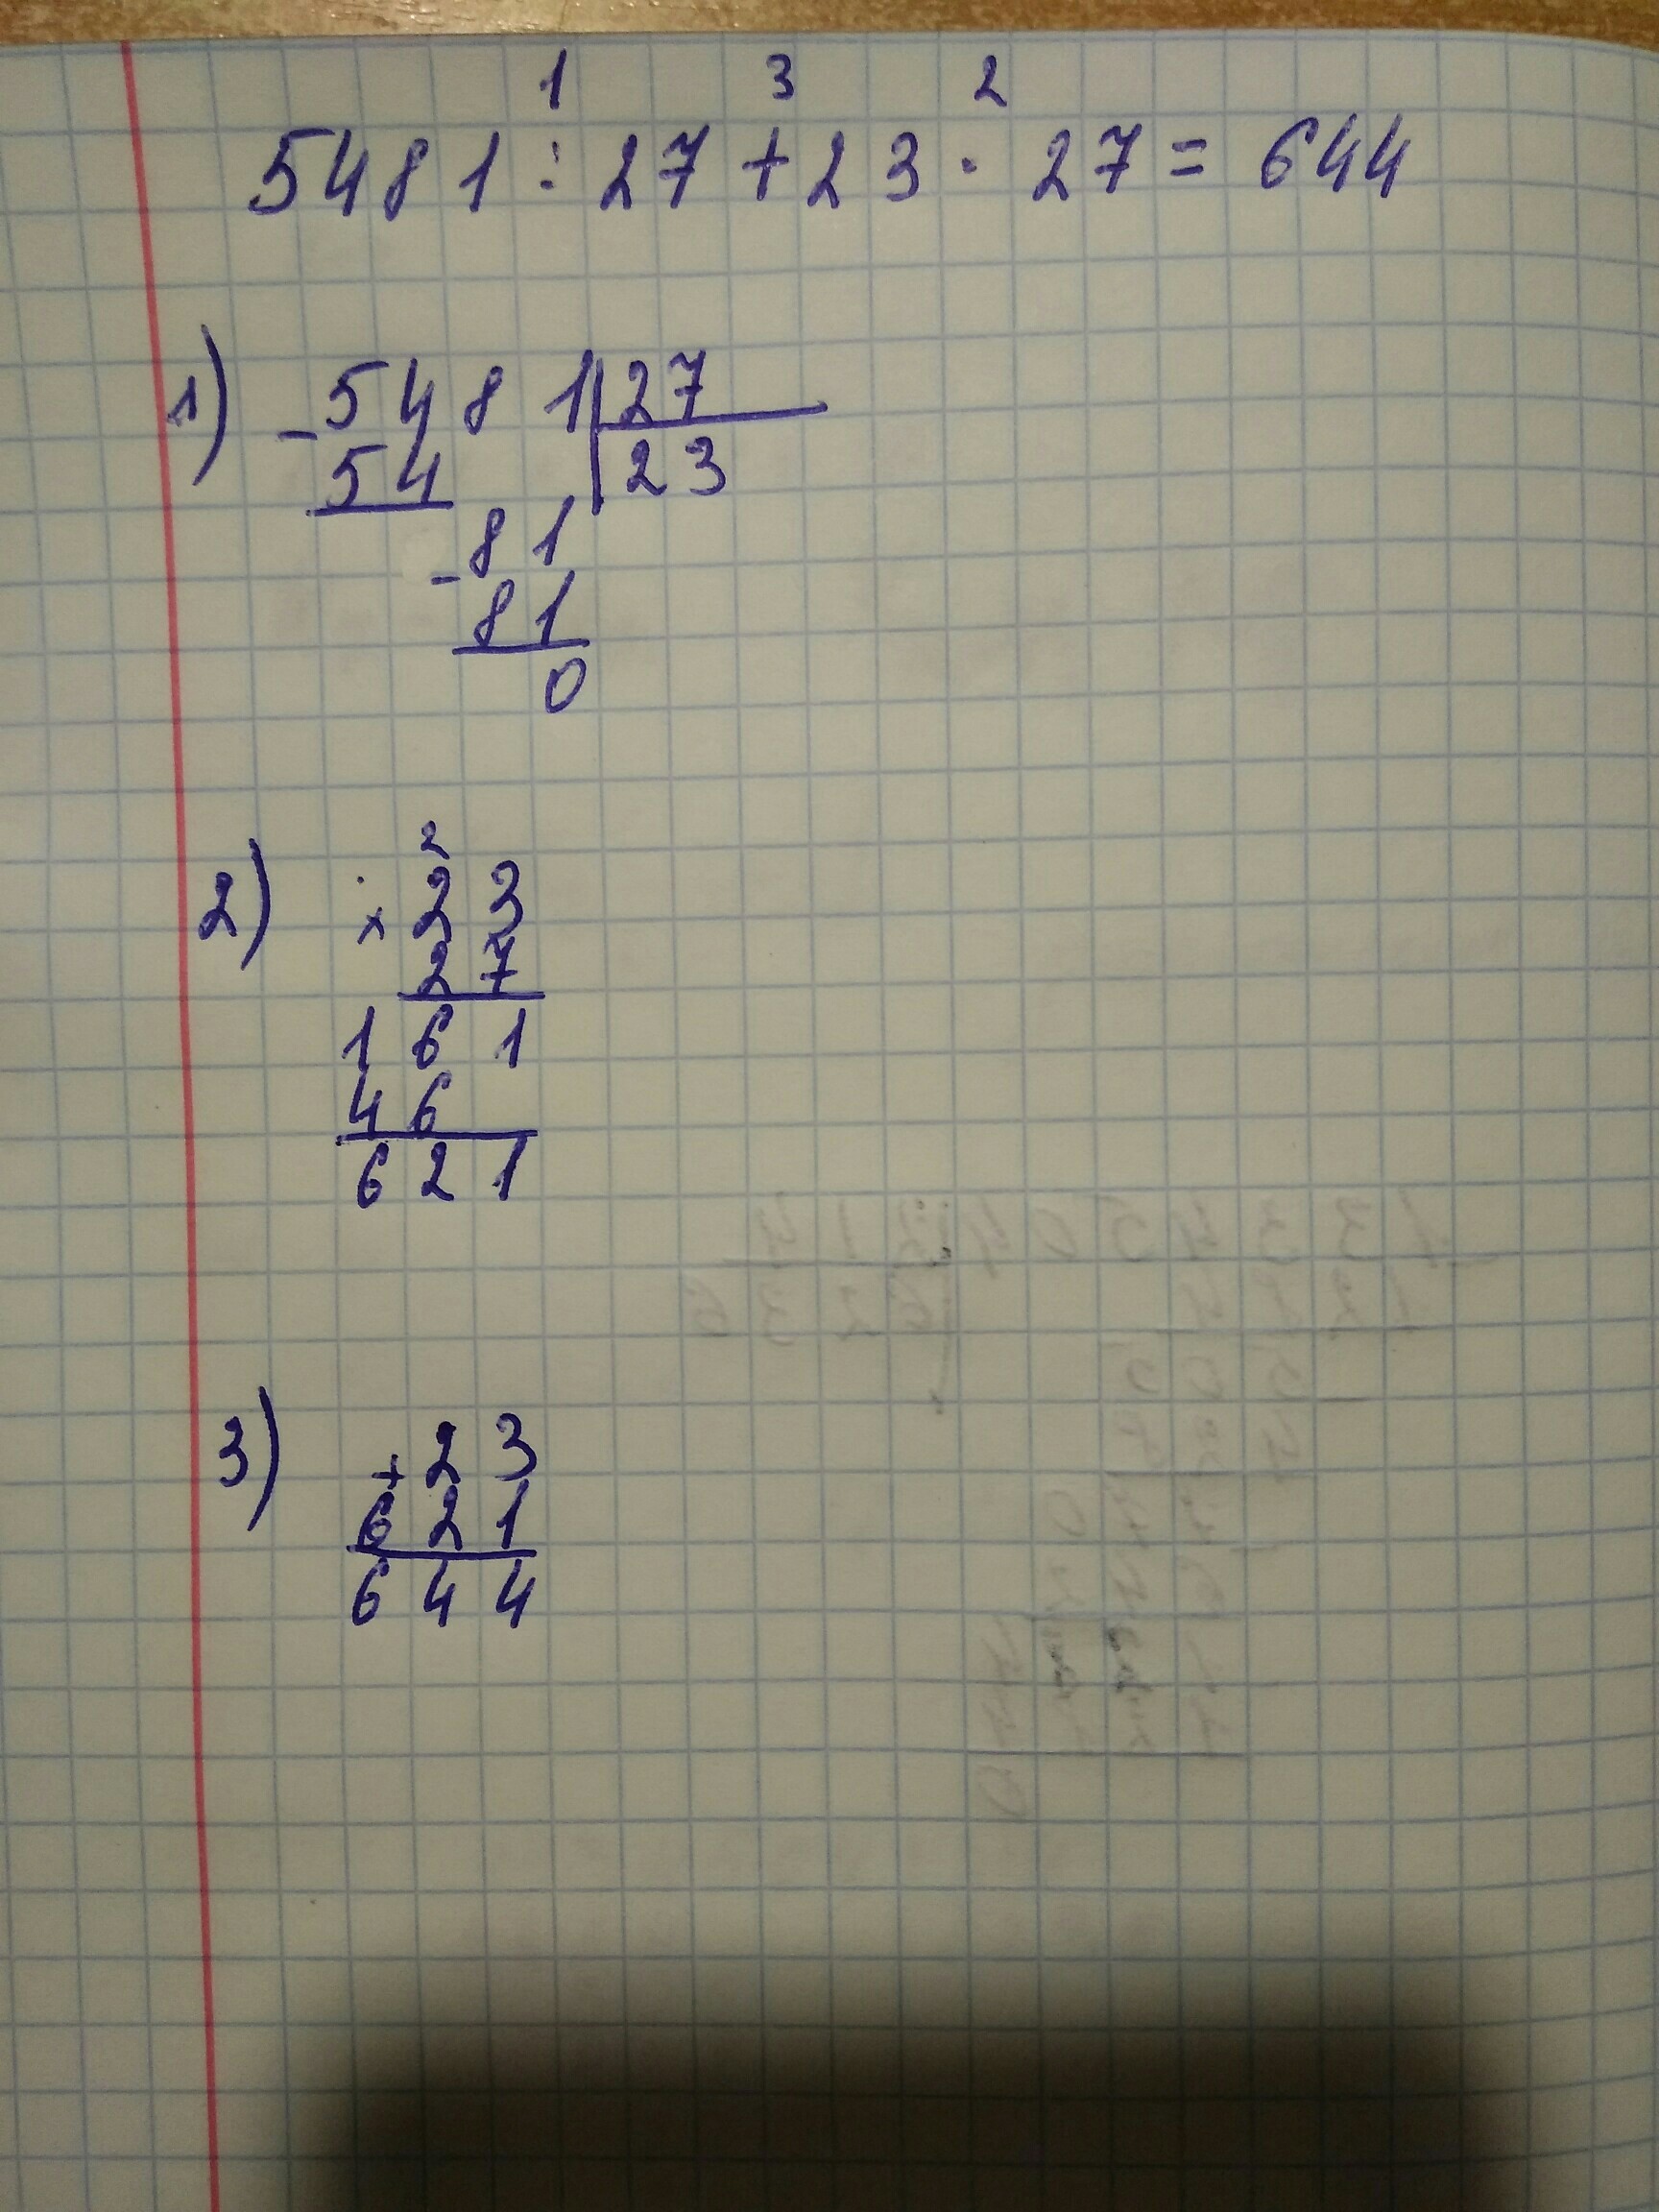 1 3 2
5481 : 27 + 23 · 27 = 644
1) - 5481 | 27
54 | 23
- 81
81
0
2) 2
× 23
27
161
46
621
3) + 23
621
644